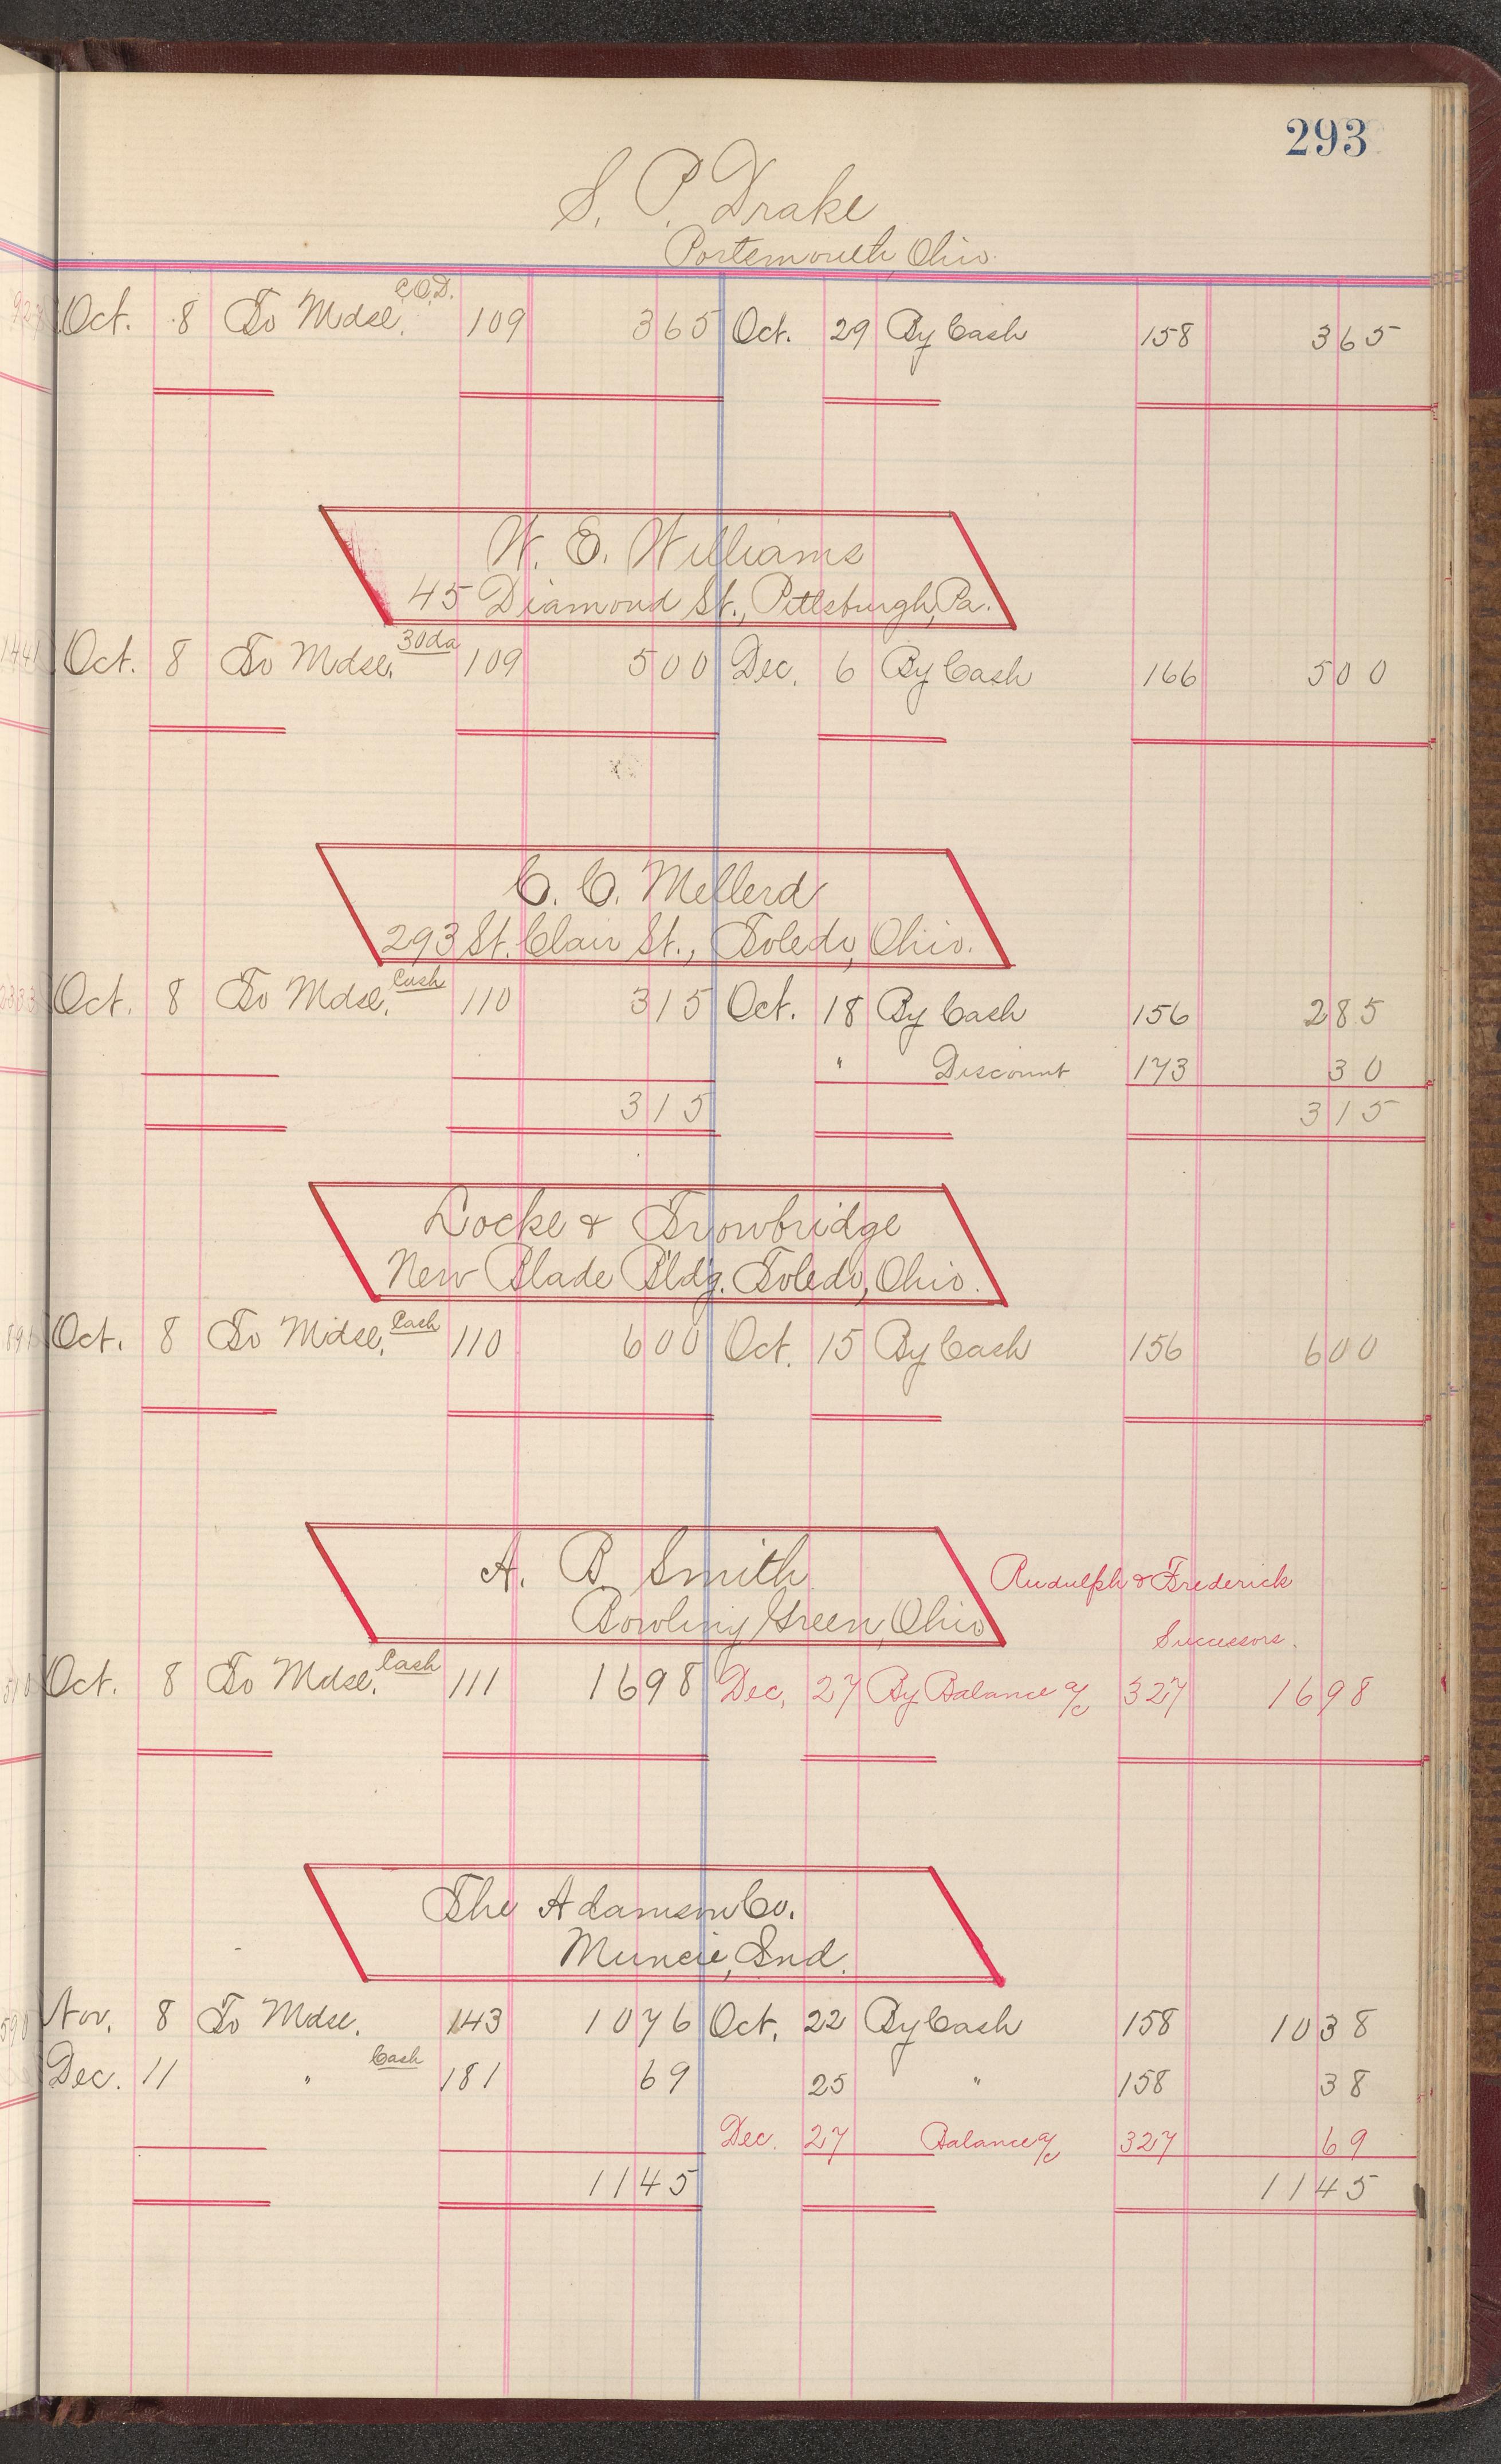 293
S. P. Drake
Portsmouth, Ohio.
Oct. 8 To Mdse. C.O.D. 109 365 Oct. 29 By Cash 158 365
W. E. Williams
45 Diamond St., Pittsburgh, Pa.
Oct. 8 To Mdse. 30da 109 500 Dec. 6 By Cash 166 500
C. C. Mellerd
293 St. Clair St., Toledo, Ohio.
Oct. 8 To Mdse. Cash 110 315 Oct. 18 By Cash 156 285
" Discount 173 30
315 315
Locke & Trowbridge
New Blade Bldg. Toledo, Ohio.
Oct. 8 To Mdse. Cash 110 600 Oct. 15 By Cash 156 600
A. B. Smith
Bowling Green, Ohio
Rudulph & Frederick
Successors.
Oct. 8 To Mdse. Cash 111 1698 Dec. 27 By Balance a/c 327 1698
The Adamson Co.
Muncie, Ind.
Nov. 8 To Mdse. 143 1076 Oct. 22 By Cash 158 1038
Dec. 11 " Cash 181 69 25 " 158 38
Dec. 27 Balance a/c 327 69
1145 1145